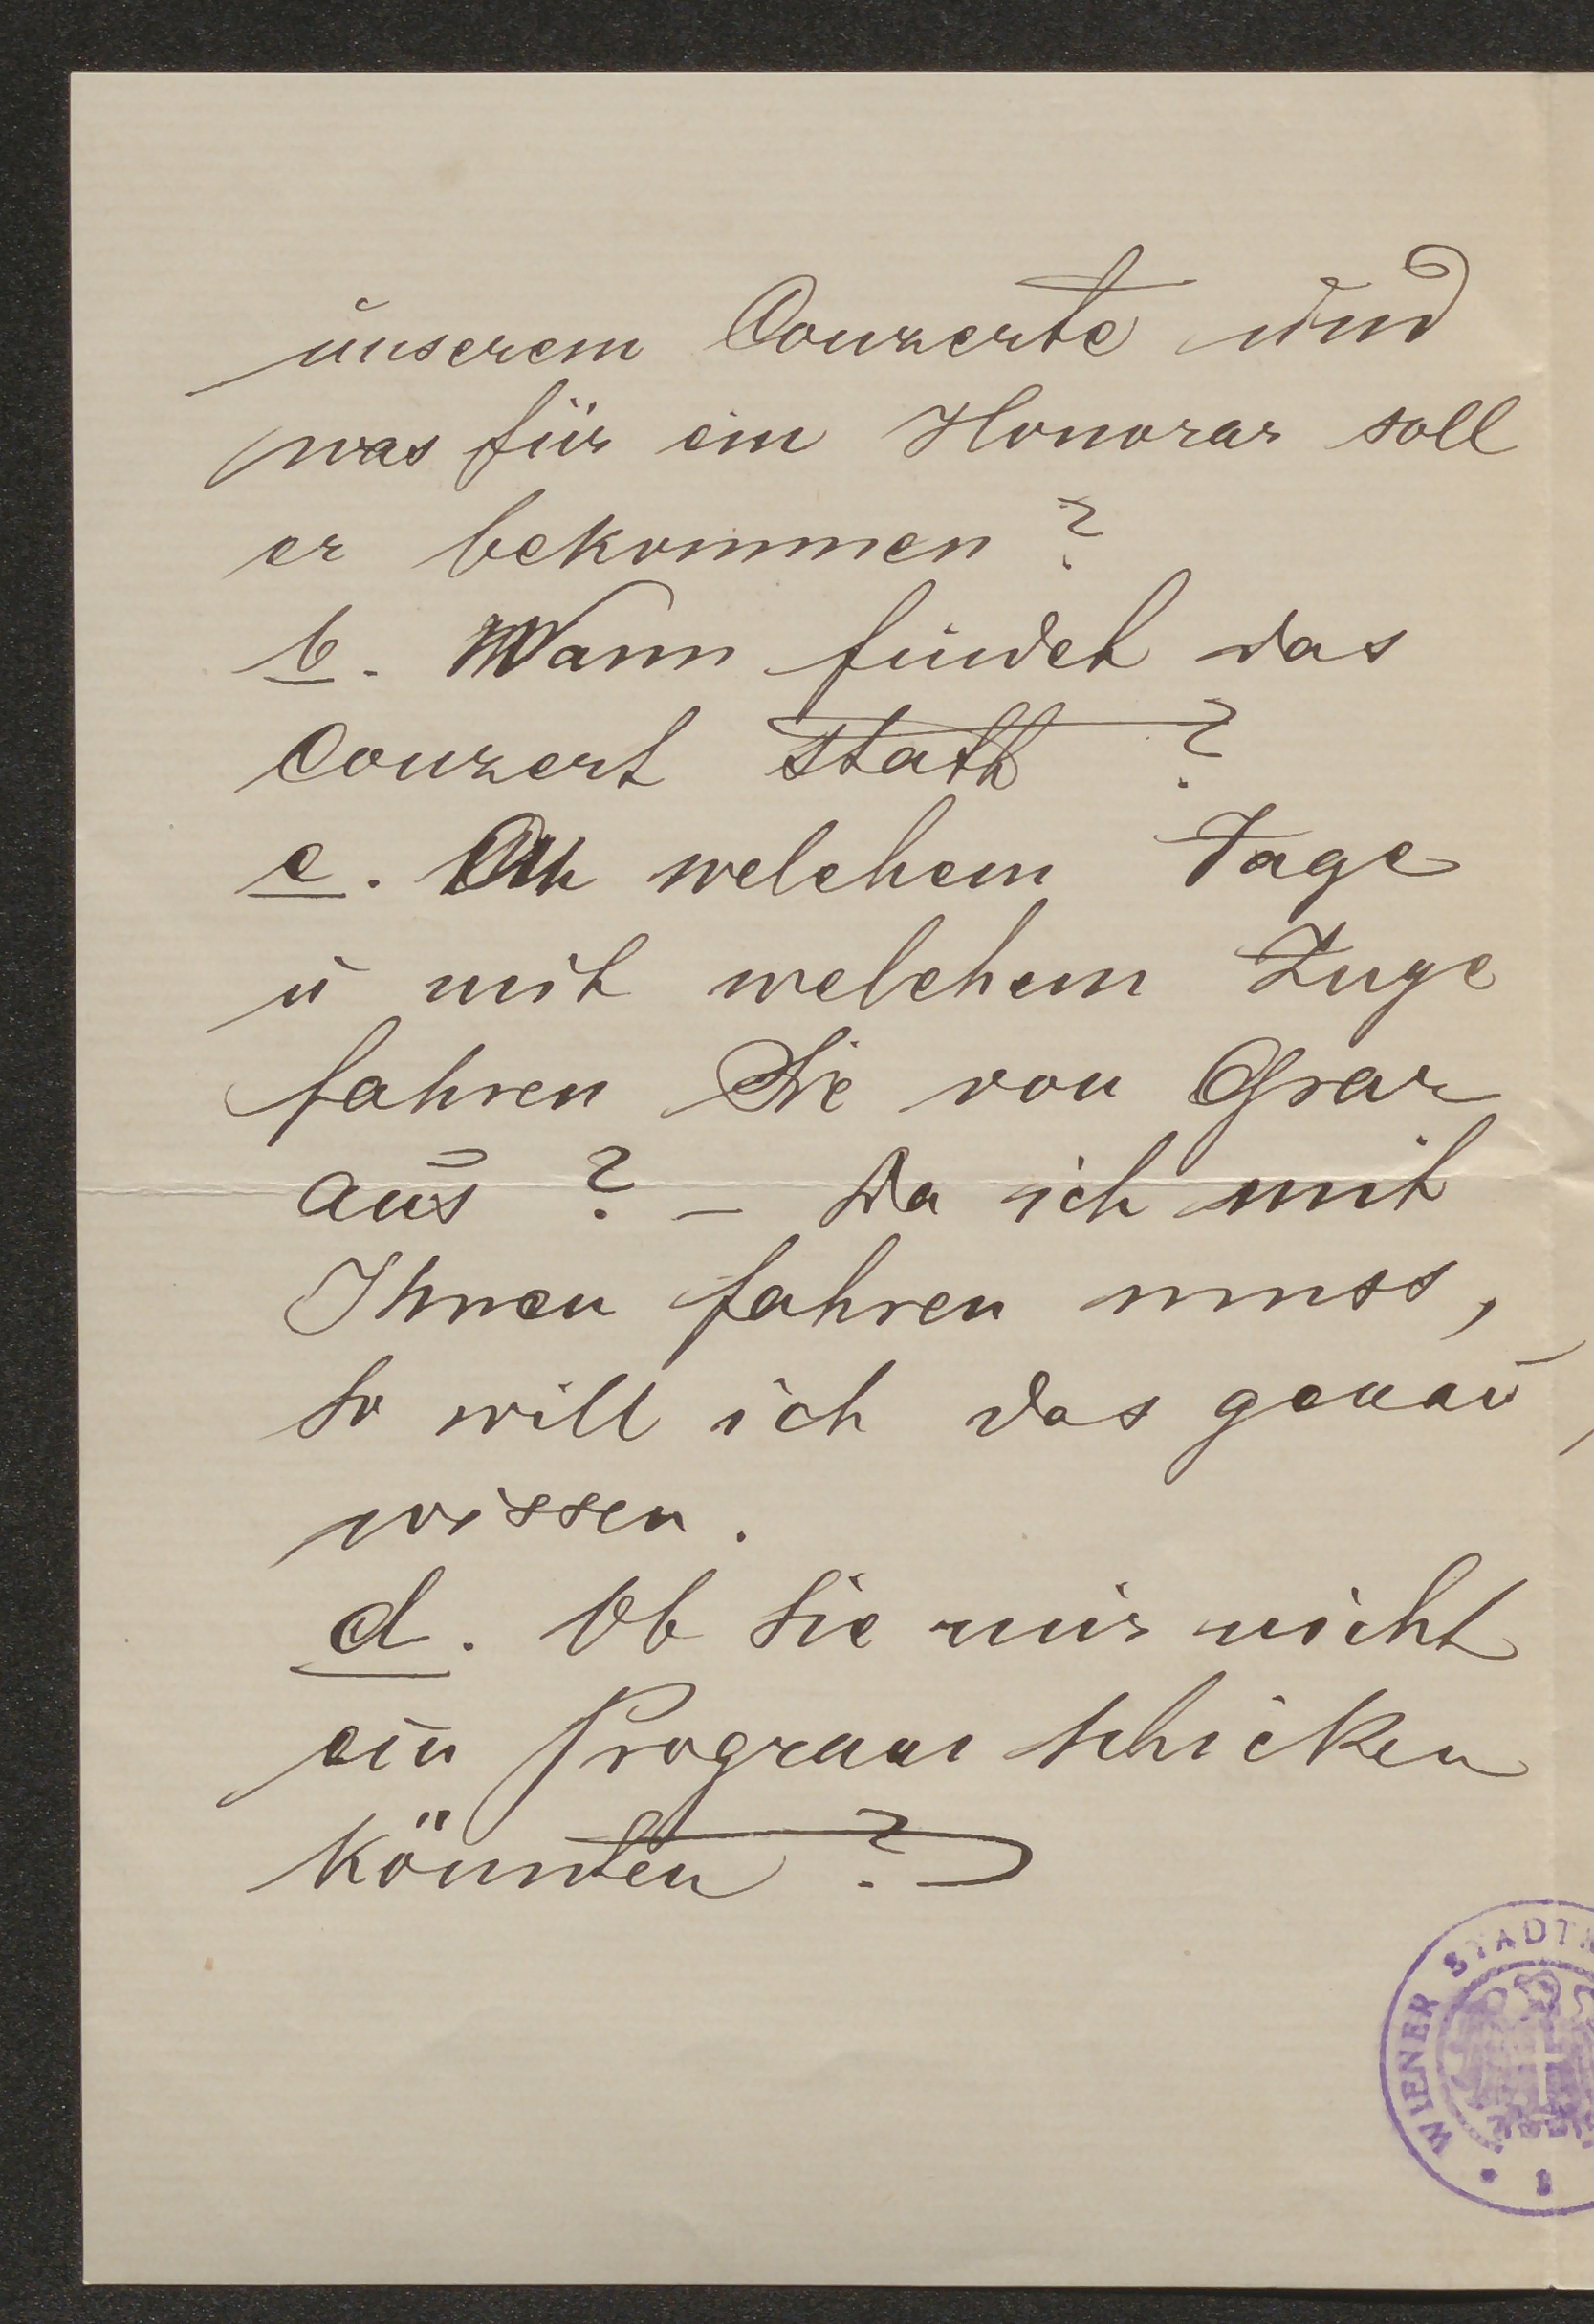 unserem Conzerte und
was für ein Honorar soll
er bekommen?
b. Wann findet das
Conzert statt?
c. An welchem Tage
u mit welchem Zuge
fahren Sie von Graz
aus? – Da ich mit
Ihnen fahren muss,
so will ich das genau
wissen.
d. Ob Sie mir nicht
ein Program schicken
könnten?
WIENER STADT